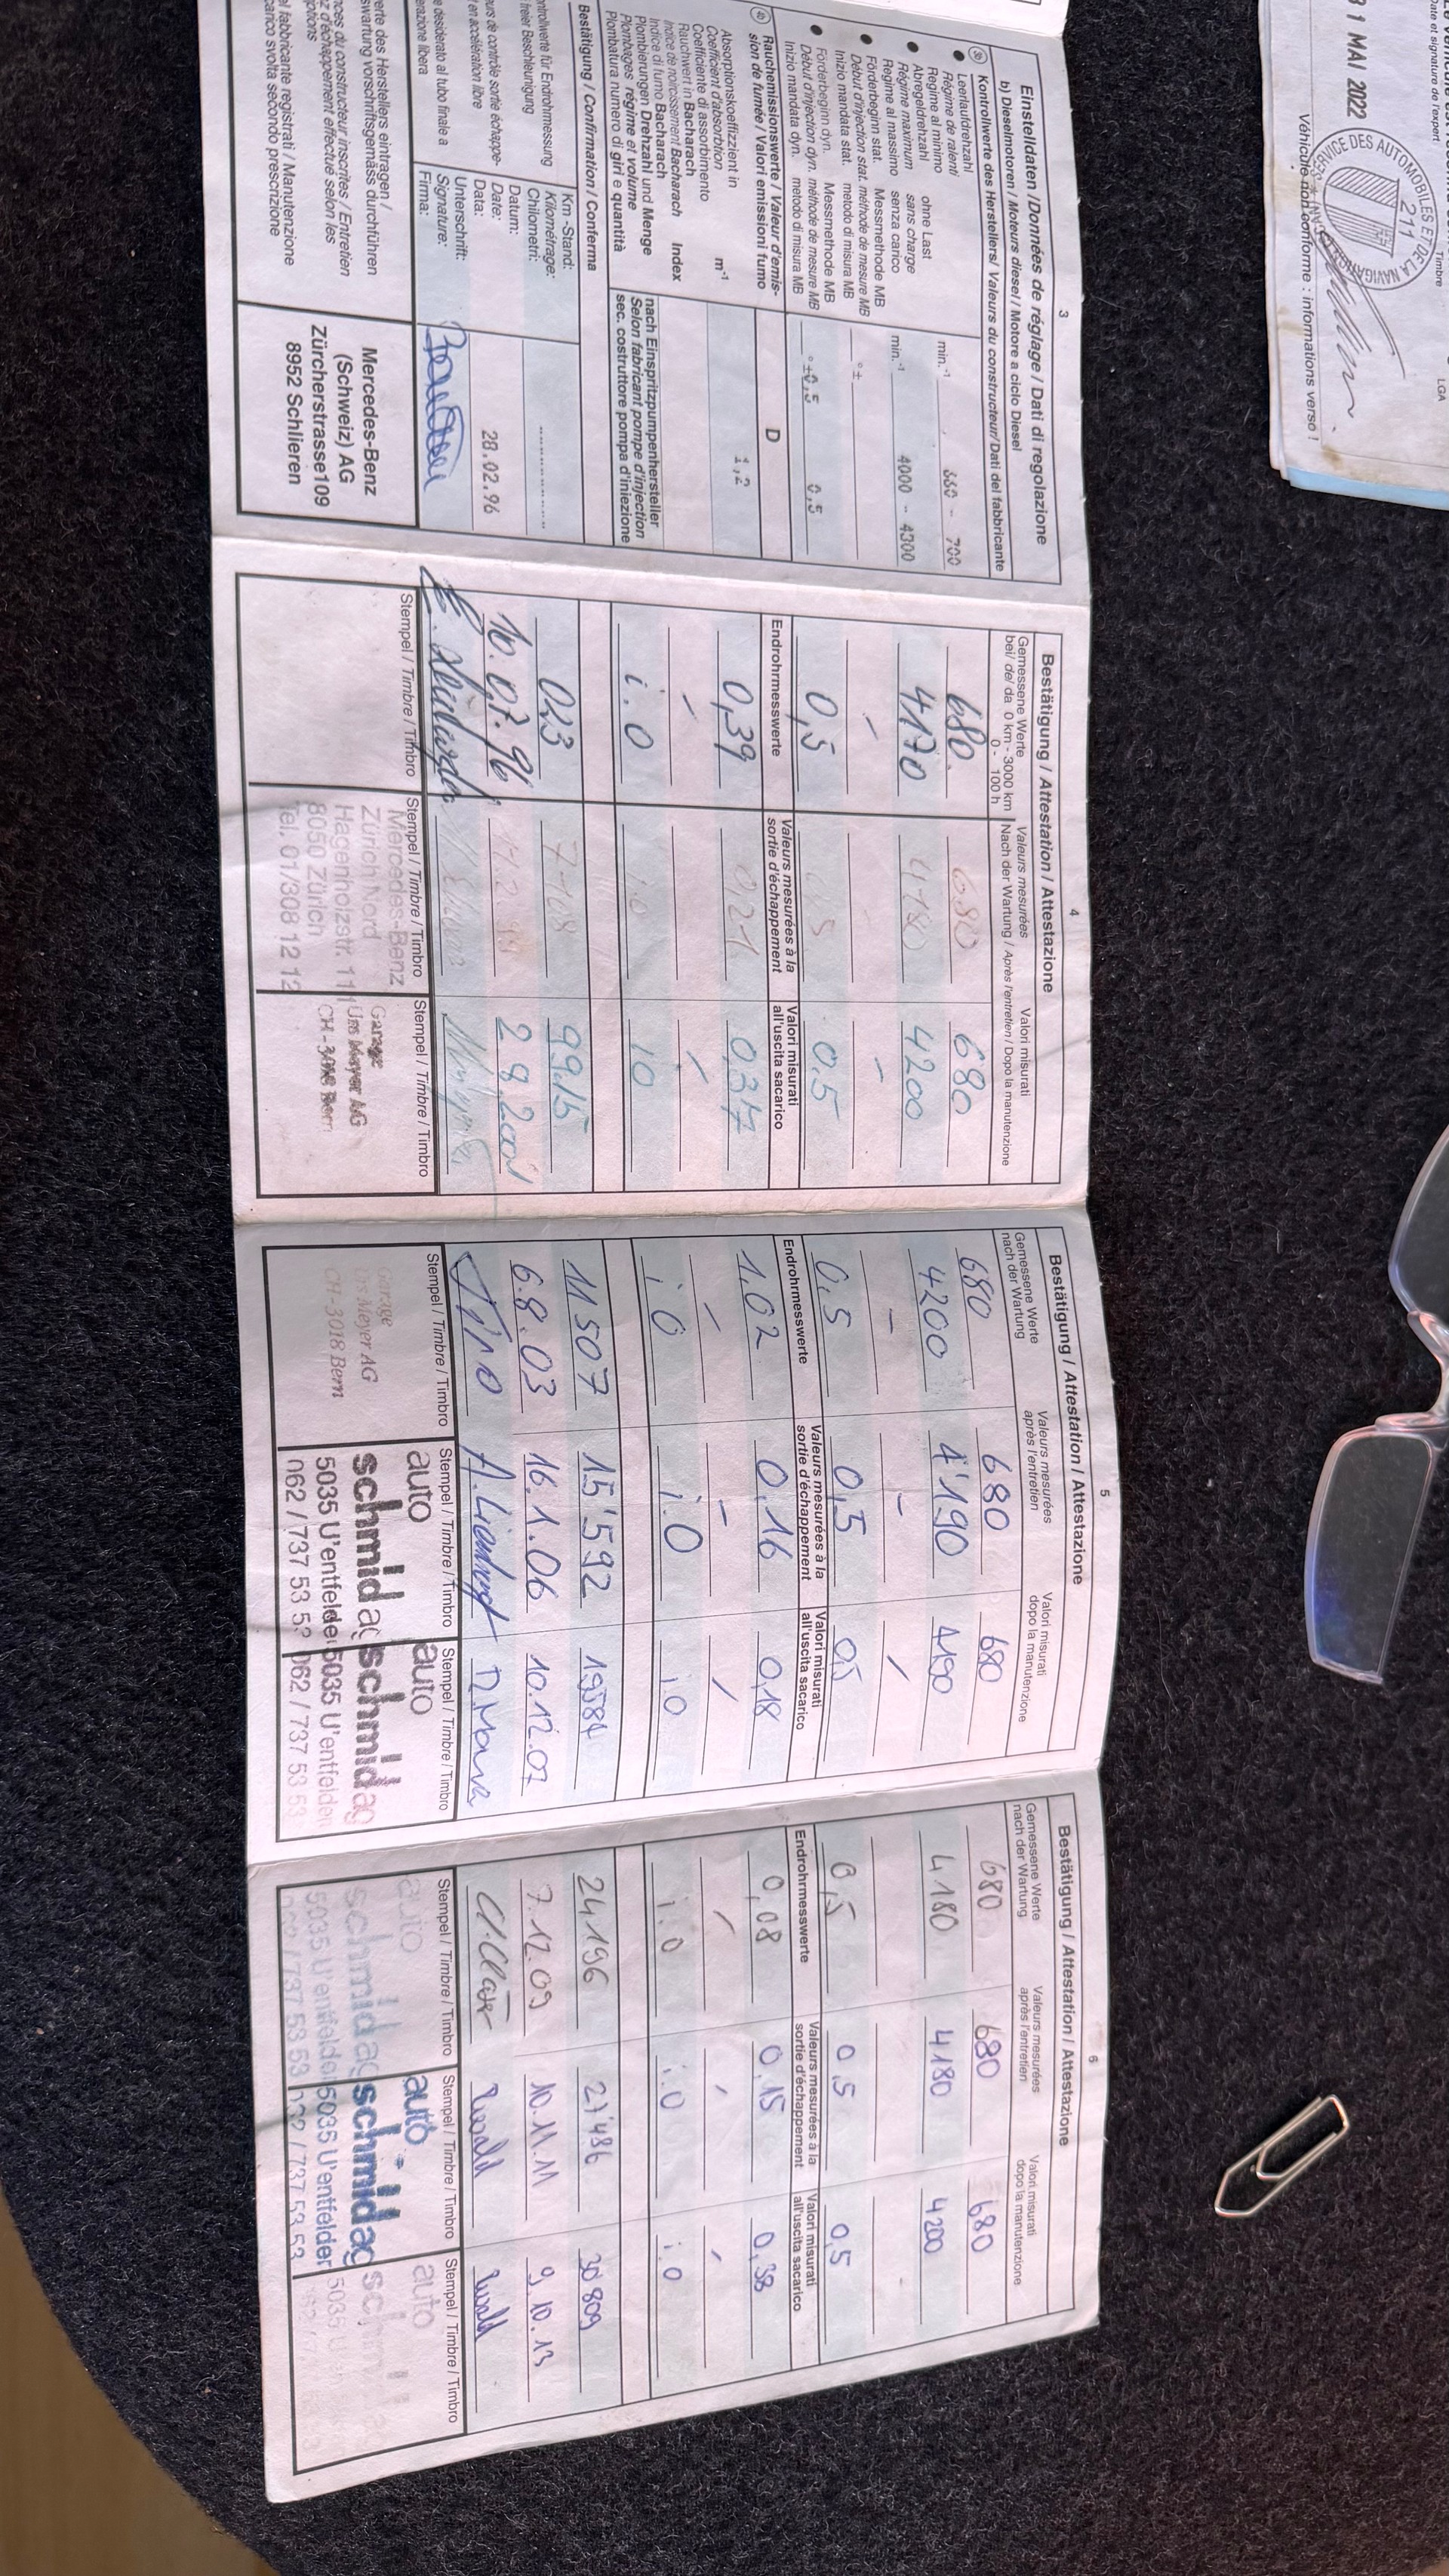 3
Einstelldaten / Données de réglage / Dati di regolazione
b) Dieselmotoren / Moteurs diesel / Motore a ciclo Diesel
Kontrollwerte des Herstellers/ Valeurs du constructeur/ Dati del fabbricante
Leerlaufdrehzahl
Régime de ralenti
Regime al minimo
min.-1 660 - 700
Abregeldrehzahl ohne Last
Régime maximum sans charge
Regime al massimo senza carico
min.-1 4000 - 4300
Förderbeginn stat. Messmethode MB
Début d'injection stat. méthode de mesure MB
Inizio mandata stat. metodo di misura MB
° ±
Förderbeginn dyn. Messmethode MB
Début d'injection dyn. méthode de mesure MB
Inizio mandata dyn. metodo di misura MB
° ±0,5 0,5
Rauchemissionswerte / Valeur d'emis-
sion de fumée / Valori emissioni fumo
D
Absorptionskoeffizient in
Coefficient d'absorbtion
Coefficiente di assorbimento
m-1
1,2
Rauchwert in Bacharach
Indice de noircissement Bacharach Index
Indice di fumo Bacharach
Plombierungen Drehzahl und Menge
Plombages régime et volume
Plombatura numero di giri e quantità
nach Einspritzpumpenhersteller
Selon fabricant pompe d'injection
sec. costruttore pompa d'iniezione
Bestätigung / Confirmation / Conferma
Km -Stand:
Kilométrage:
Chilometri:
Datum:
Date:
Data:
28.02.96
Unterschrift:
Signature:
Firma:
ontrollwerte für Endrohrmessung
freier Beschleunigung
urs de contrôle sortie échappe-
en accélération libre
e desiderato al tubo finale a
erazione libera
erte des Herstellers eintragen /
swartung vorschriftsgemäss durchführen
nces du constructeur inscrites / Entretien
z d'échappement effectué selon les
el fabbricante registrati / Manutenzione
carico svolta secondo prescrizione
Mercedes-Benz
(Schweiz) AG
Zürcherstrasse 109
8952 Schlieren
4
Bestätigung / Attestation / Attestazione
Gemessene Werte Valeurs mesurées Valori misurati
bei/ de/ da 0 km - 3000 km
0 - 100 h
Nach der Wartung / Après l'entretien / Dopo la manutenzione
680. 680 680
4170 4180 4200
0,5 0,5 0.5
Endrohrmesswerte
Valeurs mesurées à la
sortie d'échappement
Valori misurati
all'uscita sacarico
0,39 0,21 0,37
i.O i.O iO
023 7-108 9915
10.07.96
Stempel / Timbre / Timbro Stempel / Timbre / Timbro Stempel / Timbre / Timbro
Mercedes-Benz
Zürich Nord
Hagenholzstr. 111
8050 Zürich
Tel. 01/308 12 12
Garage
Urs Meyer AG
CH-3018 Bern
5
Bestätigung / Attestation / Attestazione
Gemessene Werte
nach der Wartung
Valeurs mesurées
après l'entretien
Valori misurati
dopo la manutenzione
680 680 680
4200 4'190 4190
0,5 0,5 0,5
Endrohrmesswerte
Valeurs mesurées à la
sortie d'échappement
Valori misurati
all'uscita sacarico
1.02 0,16 0,18
iO i.O i.O
11507 15'592 19584
6.8.03 16.1.06 10.12.07
Stempel / Timbre / Timbro Stempel / Timbre / Timbro Stempel / Timbre / Timbro
Garage
Urs Meyer AG
CH-3018 Bern
auto
schmid ag
5035 U'entfelden
062 / 737 53 53
auto
schmid ag
5035 U'entfelden
062 / 737 53 53
6
Bestätigung / Attestation / Attestazione
Gemessene Werte
nach der Wartung
Valeurs mesurées
après l'entretien
Valori misurati
dopo la manutenzione
680 680 680
4180 4180 4200
0,5 0,5 0,5
Endrohrmesswerte
Valeurs mesurées à la
sortie d'échappement
Valori misurati
all'uscita sacarico
0,08 0,15 0,38
i.O i.O i.O
24196 27'486 30'809
7.12.09 10.11.11 9.10.13
Stempel / Timbre / Timbro Stempel / Timbre / Timbro Stempel / Timbre / Timbro
auto
schmid ag
5035 U'entfelden
062 / 737 53 53
auto
schmid ag
5035 U'entfelden
062 / 737 53 53
auto
5035 U
Date et signature de l'expert
Timbre
LGA
3 1 MAI 2022
SERVICE DES AUTOMOBILES ET DE LA NAVIGATION
211
Véhicule non conforme : informations verso !